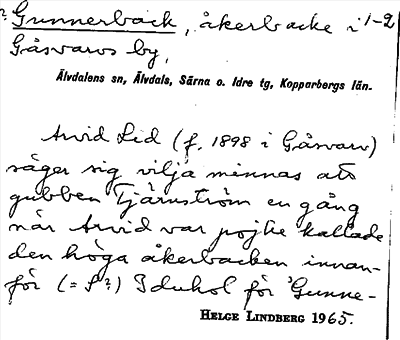 ? Gunnerback, åkerbacke i 1-2
Gåsvarvs by,
Älvdalens sn, Älvdals, Särna o. Idre tg, Kopparbergs län.
Arvid Lid (f. 1898 i Gåsvarv)
säger sig vilja minnas att
gubben Tjärnström en gång
när Arvid var pojke kallade
den höga åkerbacken innan-
för (= S?) Iduhol för 'Gunne-
HELGE LINDBERG 1965.